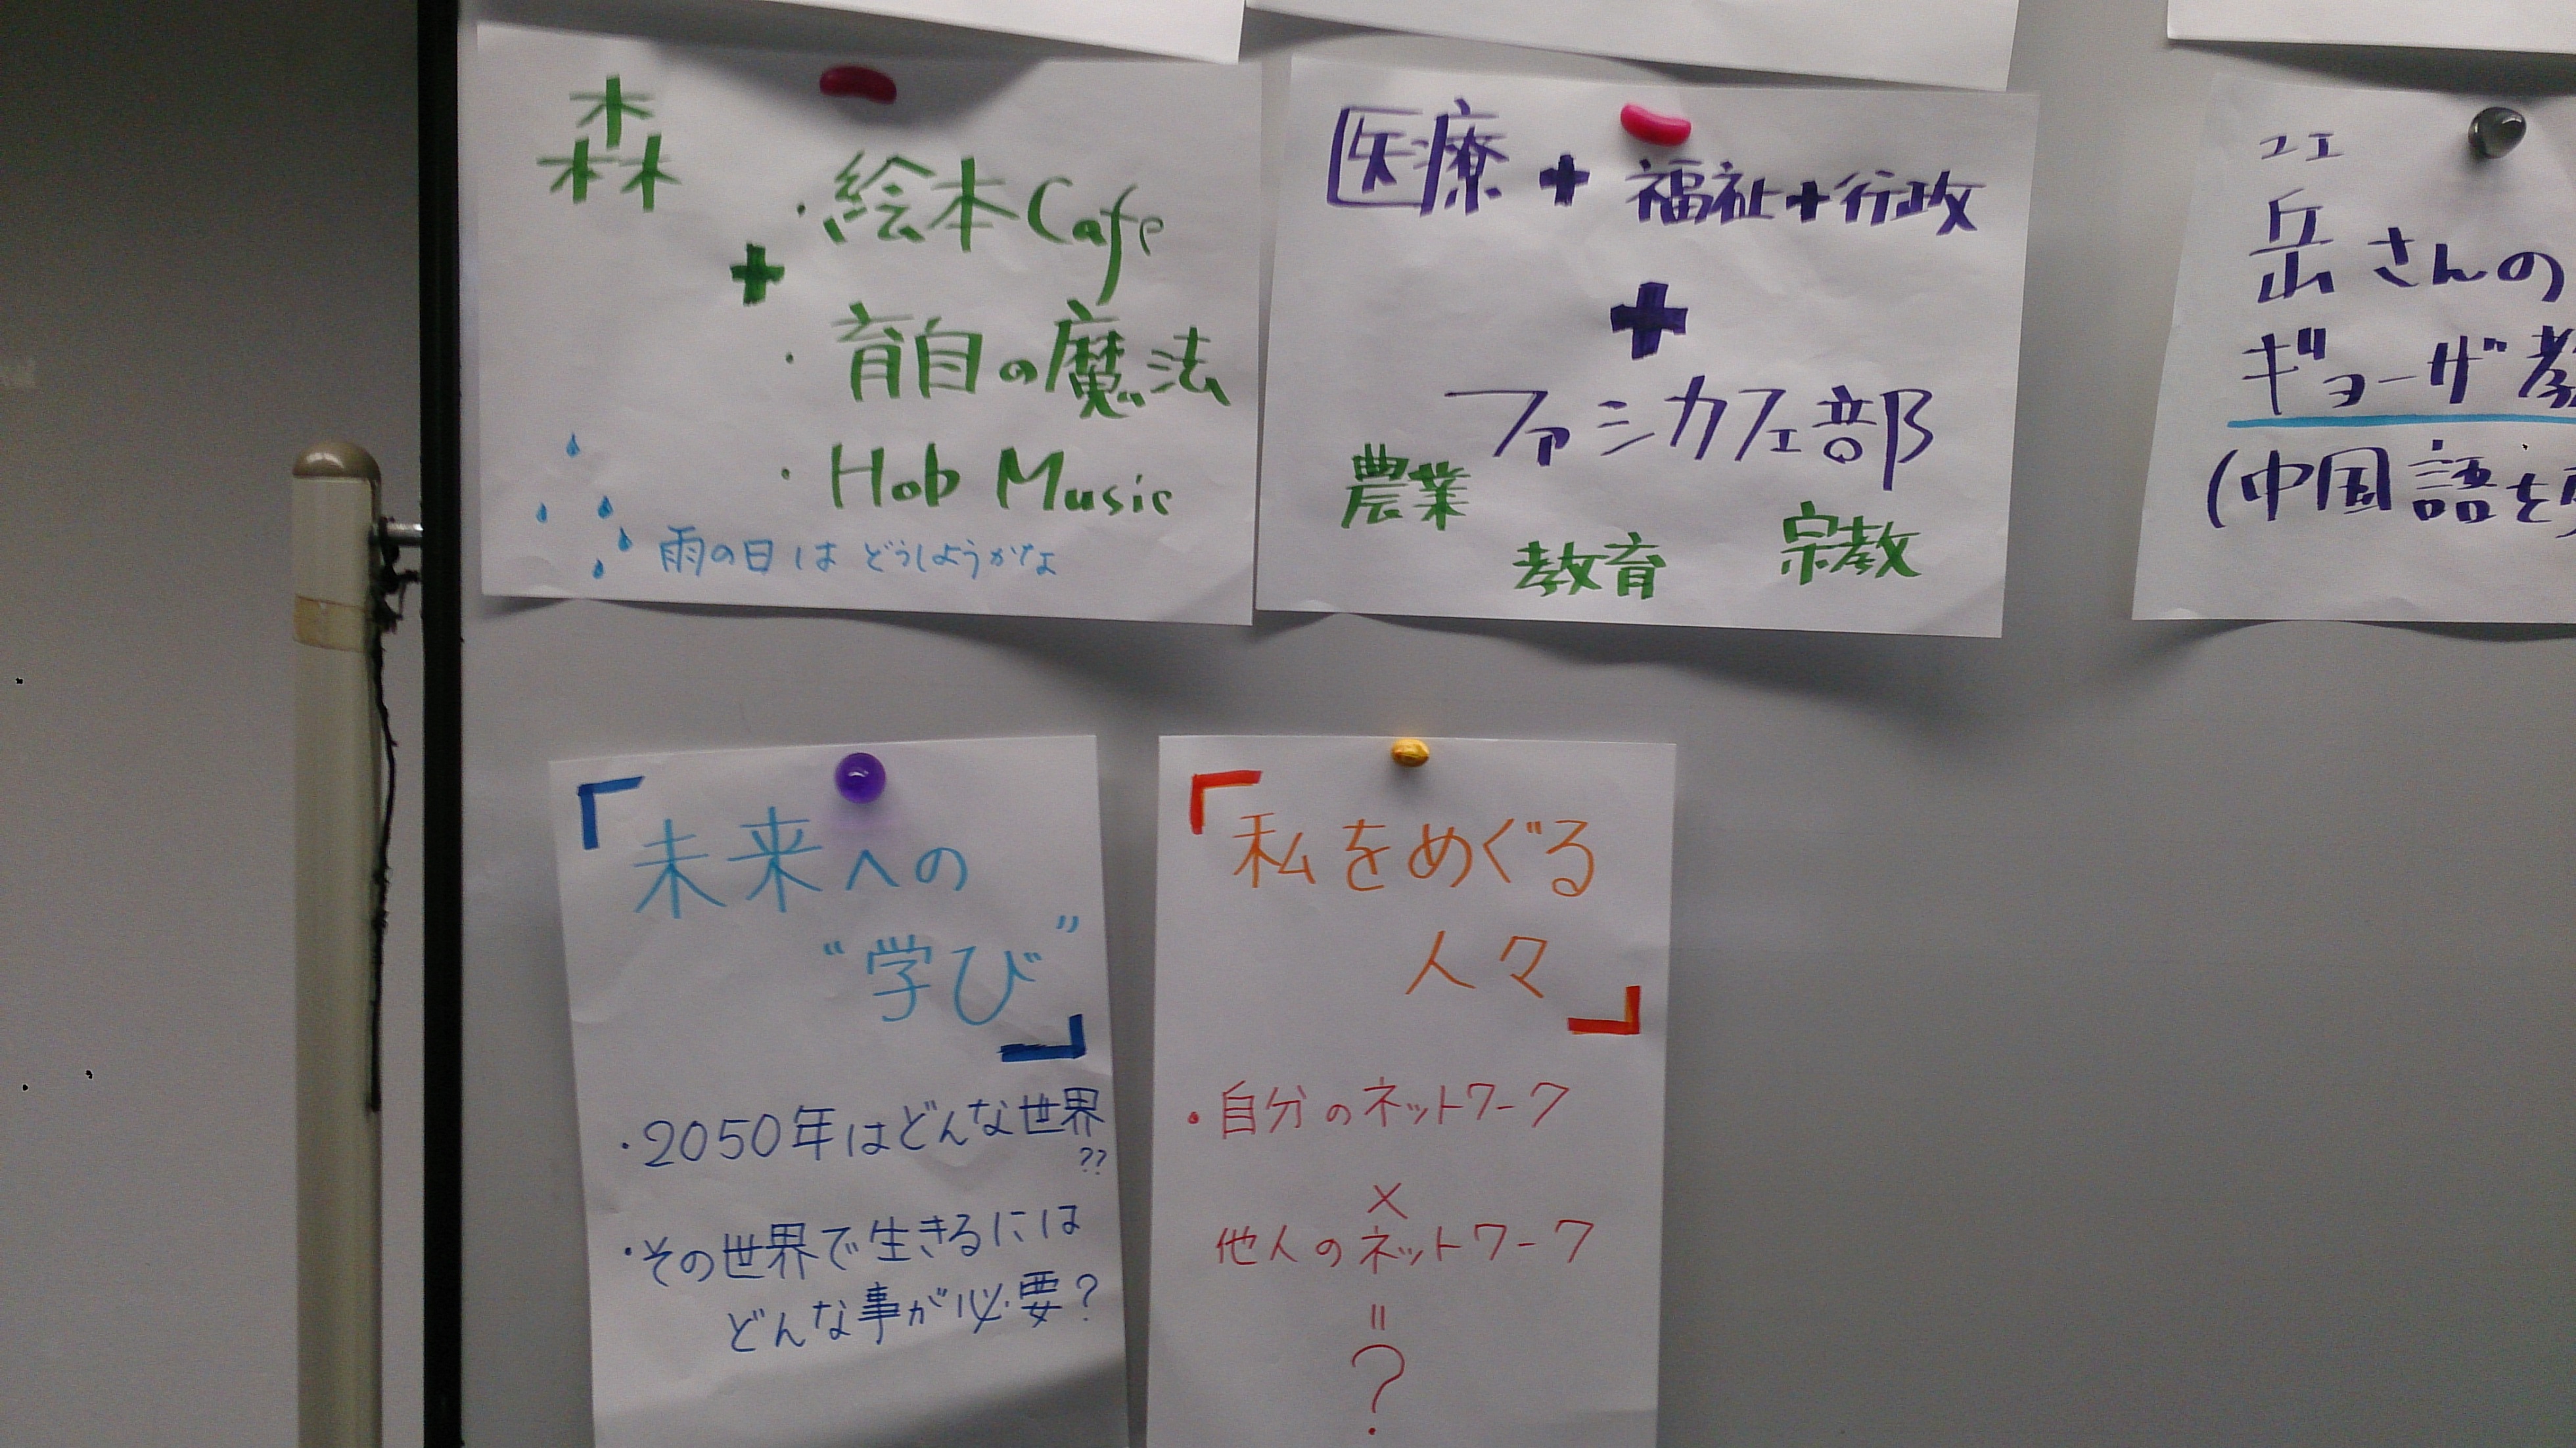 森
+
・絵本Cafe
・育自の魔法
・Hob Music
雨の日は どうしようかな
医療+福祉+行政
+
ファシカフェ部
農業
教育
宗教
ユエ
岳さんの
ギョーザ教
(中国語を
「未来への
"学び"」
・2050年はどんな世界
??
・その世界で生きるには
どんな事が必要?
「私をめぐる
人々」
・自分のネットワーク
×
他人のネットワーク
=
?